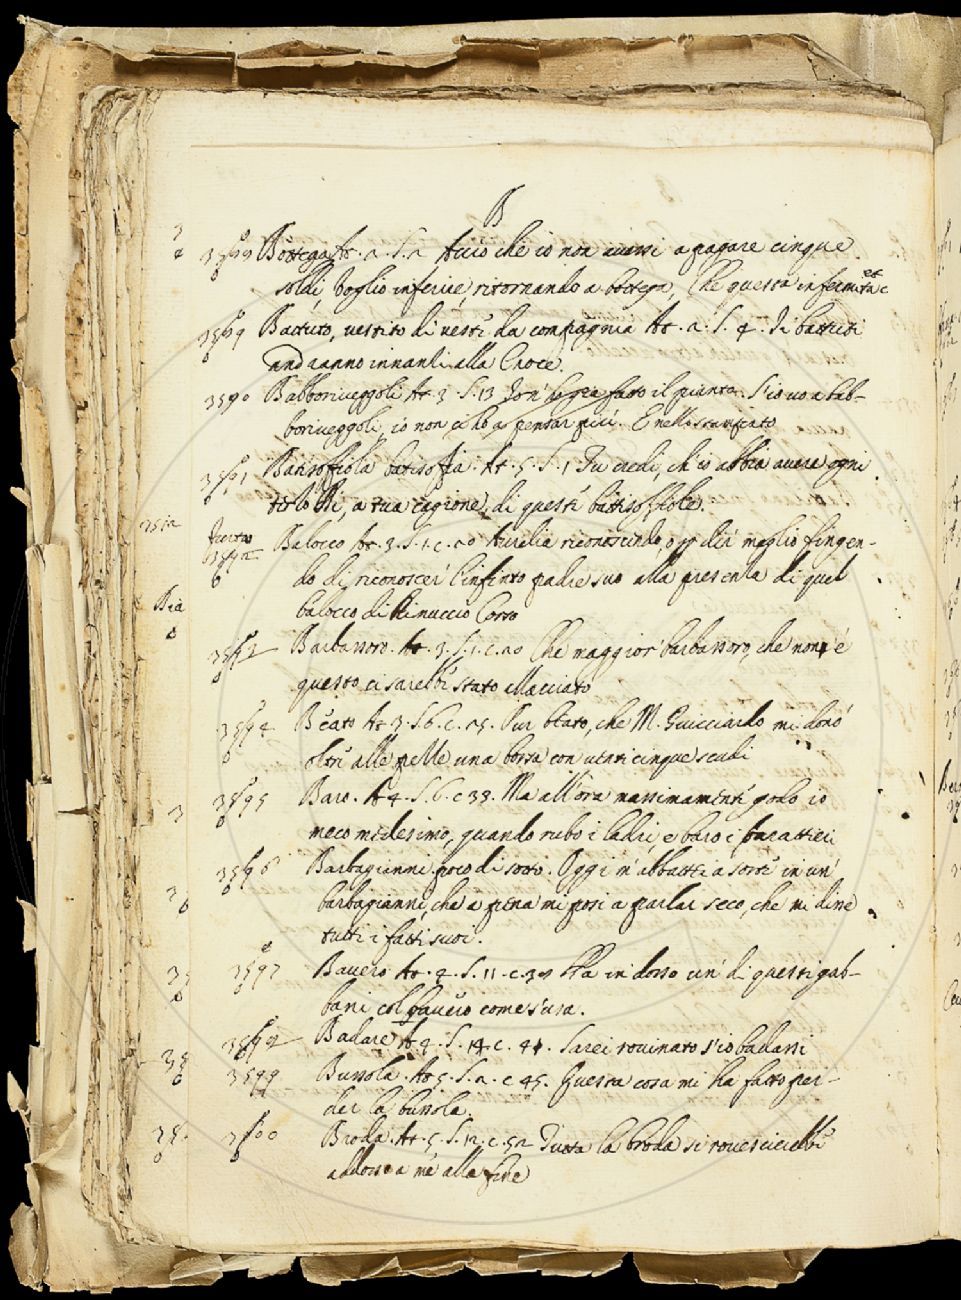 B
3588 Bottega At. 2. S. 2 Acciò che io non avessi a pagare cinque
soldi, voglio inferire, ritornando a bottega, Che questa infermità è
3589 Battuto, vestito di vesti da compagnia At. 2. S. 4. Li battuti
andranno innanzi alla Croce.
3590 Babboriveggoli At. 3. S. 13 Io n'ho già fatto il pianto. S'io vo a bab-
boriveggoli, io non ci ho a pensar più. E nello stampato
3591 Battisoffiola battisoffia. At. 5. S. 1 Tu credi, ch'io abbia avere ogni
dì, a tua cagione, di queste battisoffiole.
Furto
3592 Balocco At. 3. S. 1. c. 20 Aurelia riconoscendo, o per dir meglio fingen-
do di riconoscer l'infinto padre suo alla presenza di quel
balocco di Rinuccio Corso
3593 Barbassoro. At. 3. S. 1. c. 20 Che maggior barbassoro, che non è
questo ci sarebbe stato
3594 Beato At. 3. S. 6. c. 25. Pur beato, che M. Guicciardo mi donò
oltre alle pelle una borsa con venticinque scudi
3595 Baro. At. 4. S. 6. c. 38. Ma all'ora massimamente godo io
meco medesimo, quando rubo i ladri, e baro i barattieri
3596 Barbagianni poco di sotto. Oggi m'abbattei a sorte in un'
barbagianni, che a pena mi posi a parlar seco, che mi disse
tutti i fatti suoi.
3597 Bavero At. 4. S. 11. c. 39 Ha in dosso un' di questi gab-
bani col bavero come s'usa.
3598 Badare At. 4. S. 14. c. 44. Sarei rovinato s'io badassi
3599 Bussola. At. 5. S. 2. c. 45. Questa cosa mi ha fatto per-
der la bussola.
3600 Broda. At. 5. S. 12. c. 52 Tutta la broda si rovescierebbe
addosso a me alla fine